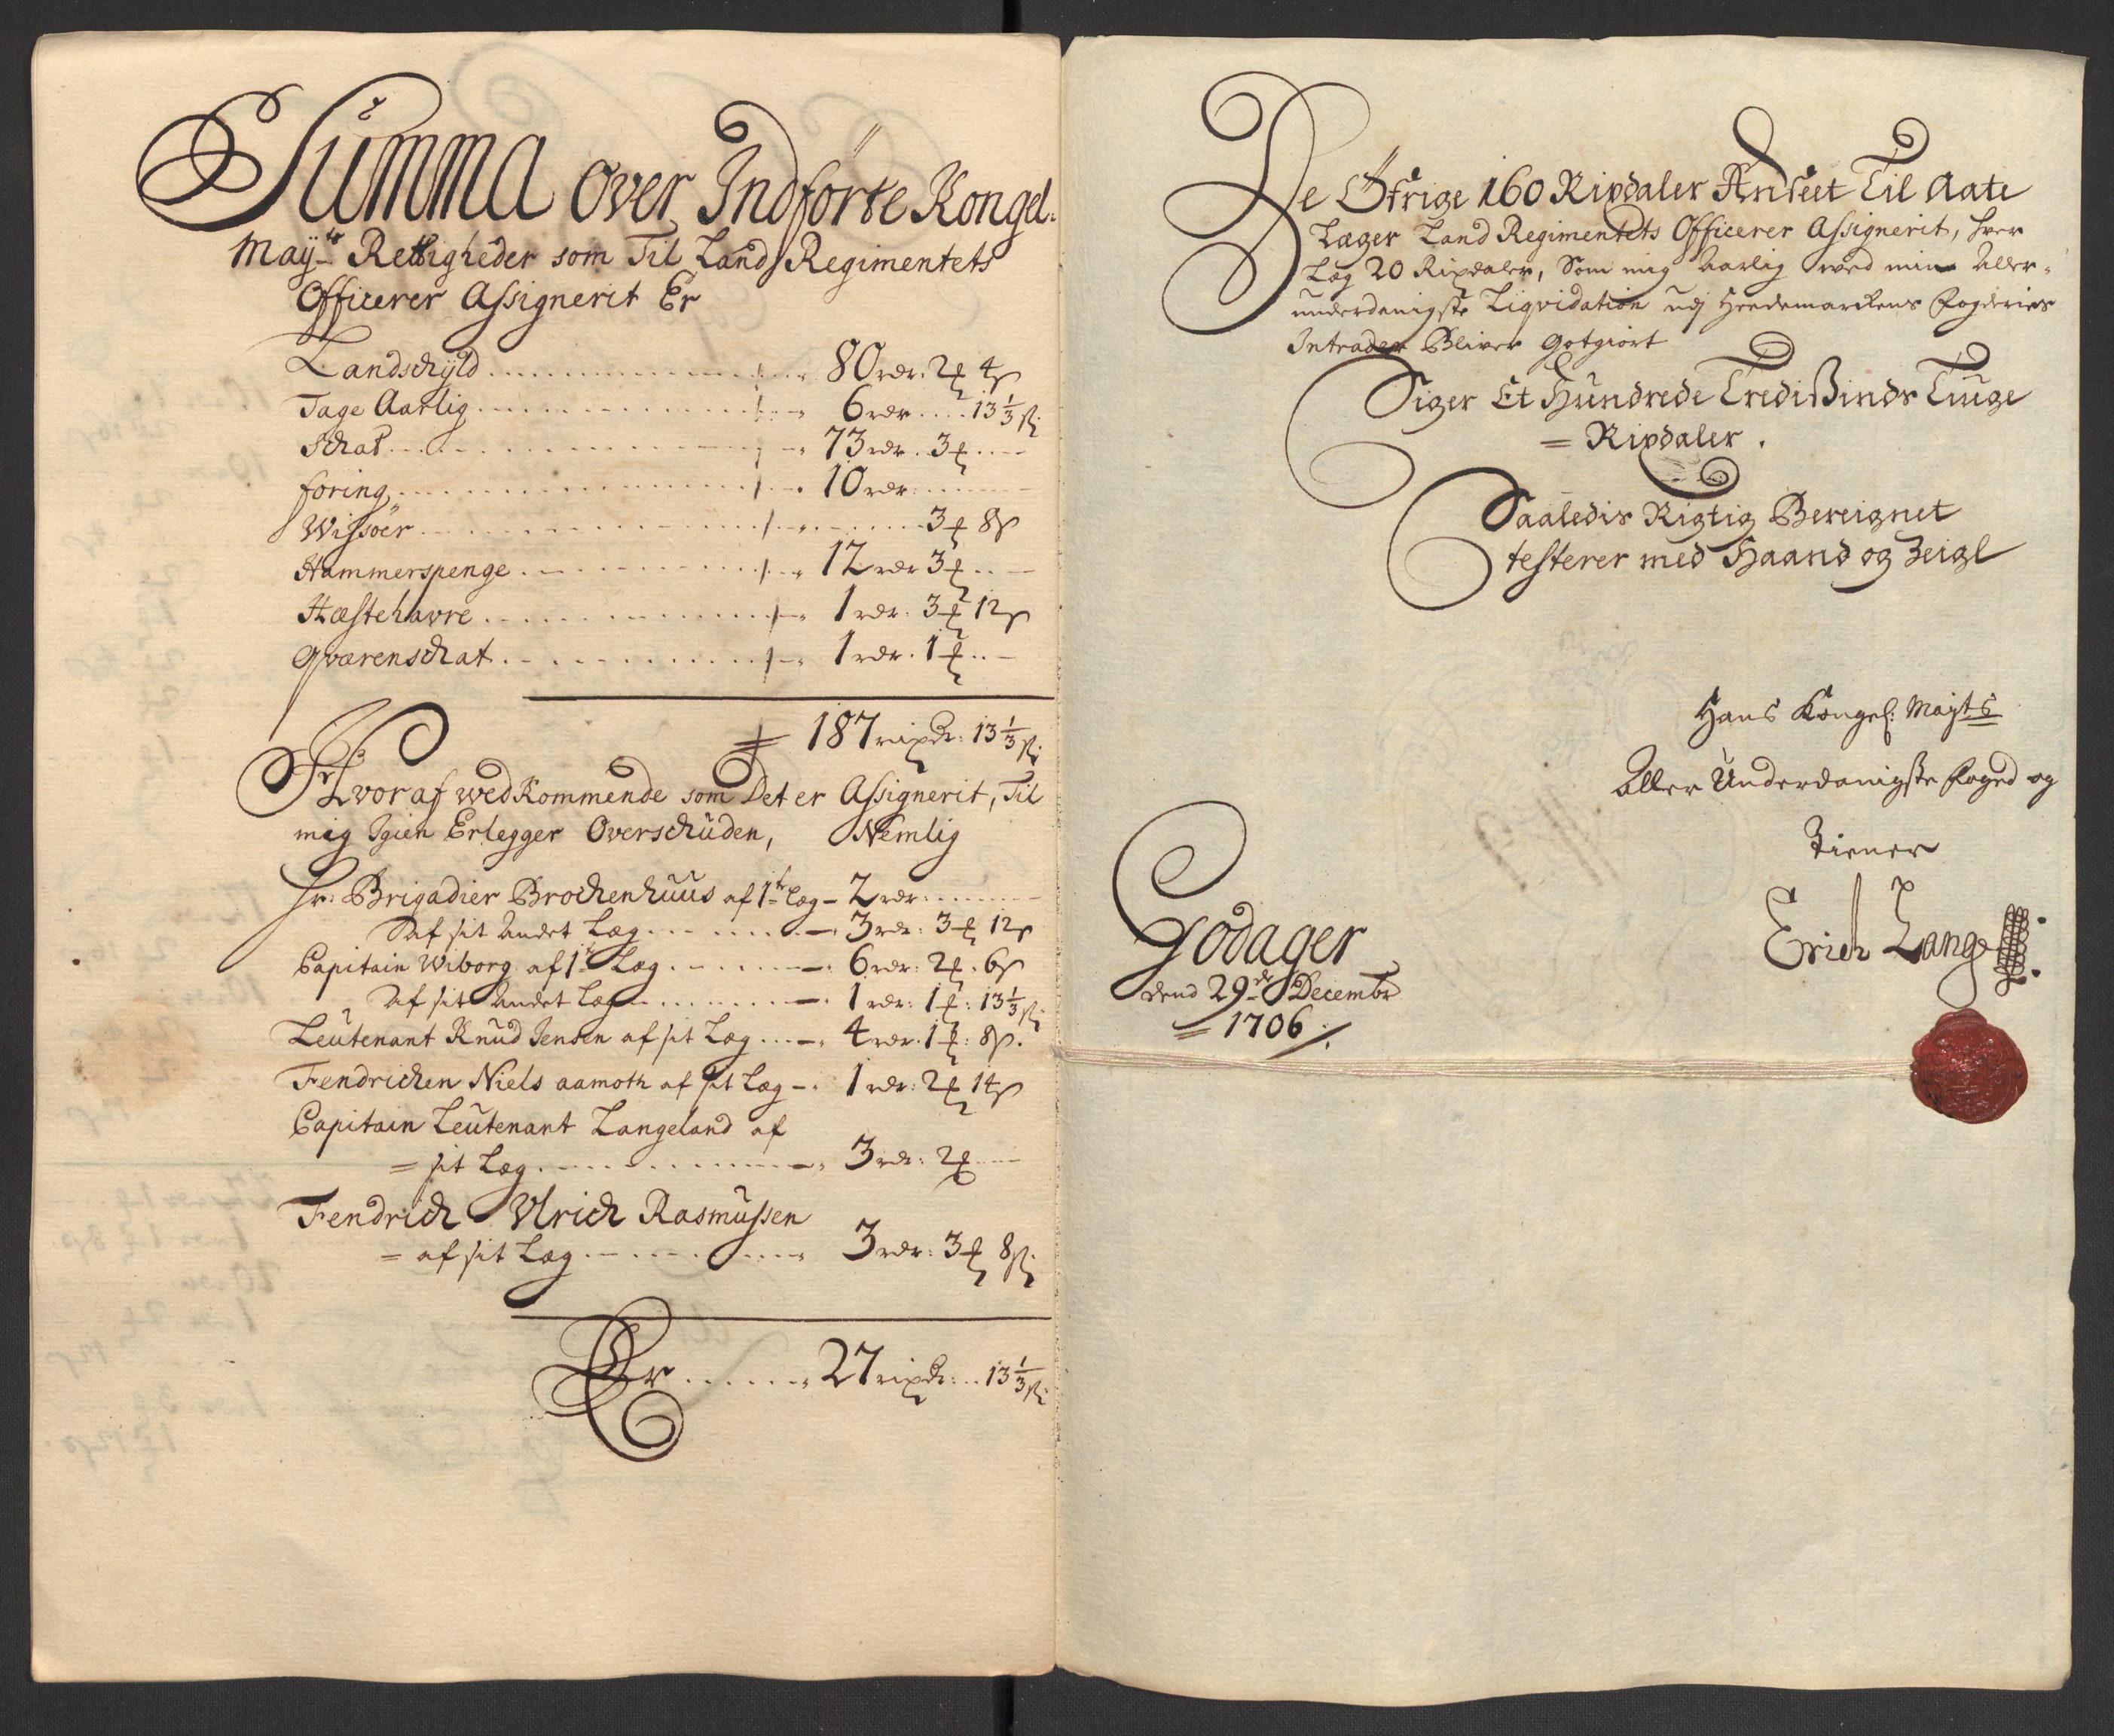 Summa over Indførte Kongel:
Mayts Rettigheder som Til Land Regimentets
Officerer Assignerit Er
Landschyld 80 rdr. 2 ꝝ 4 s
Tage Aarlig 6 rdr 13 1/3 s:
Schat 73 rdr. 3 ꝝ
foring 10 rdr
Wissøer 3 ꝝ 8 s
Hammerspenge 12 rdr 3 ꝝ
Hæstehavre 1 rdr. 3 ꝝ 12 s
Qværenschat 1 rdr. 1 ꝝ
187 rixdr: 13 1/3 s:
Hvoraf wedkommende som Det er Assignerit, Til
mig Igien Erlegger Overschuden, Nemlig
Hr: Brigadier Brochenhuus af 1te Læg 2 rdr
Af sit Andet Læg 3 rdr: 3 ꝝ 12 s
Capitain Wiborg af 1te Læg 6 rdr: 2 ꝝ. 6 s
Af sit Andet Læg 1 rdr: 1 ꝝ: 13 1/3 s:
Leutenant Knud Jensen af sit Læg 4 rdr. 1 ꝝ: 8 s.
Fendrichen Niels aamoth af sit Læg 1 rdr: 2 ꝝ 14 s
Capitain Leutenant Langeland af
= sit Læg 3 rdr: 2 ꝝ
Fendrich Ulrich Rasmussen
= af sit Læg 3 rdr: 3 ꝝ 8 s:
Er 27 rixdr: 13 1/3 s:
De Øfrige 160 Rixdaler Andset Til Aate
Læger Land Regimentets Officerer Assignerit, hver
Læg 20 Rixdaler, Som mig Aarlig ved min Aller-
underdanigste Liqvidation udj Heedemarckens Fogderies
Intrader Bliver gotgiort
Siger Et Hundrede Tredißinds Tiuge
= Rixdaler.
Saaledis Rigtig Bereignet
testerer med Haand og Zeigl
Hans Kongel: Mayts
Aller Underdanigste Foged og
Tiener
Erich Lange
Godager
dend 29de Decembr
= 1706